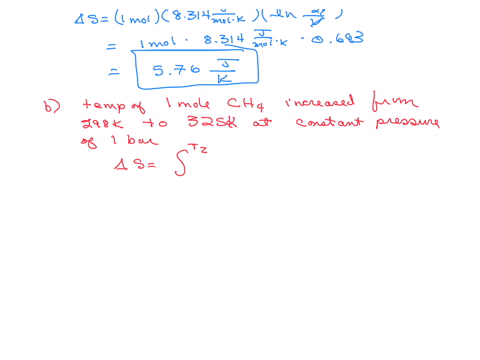 ΔS = (1 mol)(8.314 J/mol·K)(ln 2V/V)
= 1 mol · 8.314 J/mol·K · 0.693
= 5.76 J/K
b) temp of 1 mole CH4 increased from
298K to 325K at constant pressure
of 1 bar
ΔS = ∫^T2